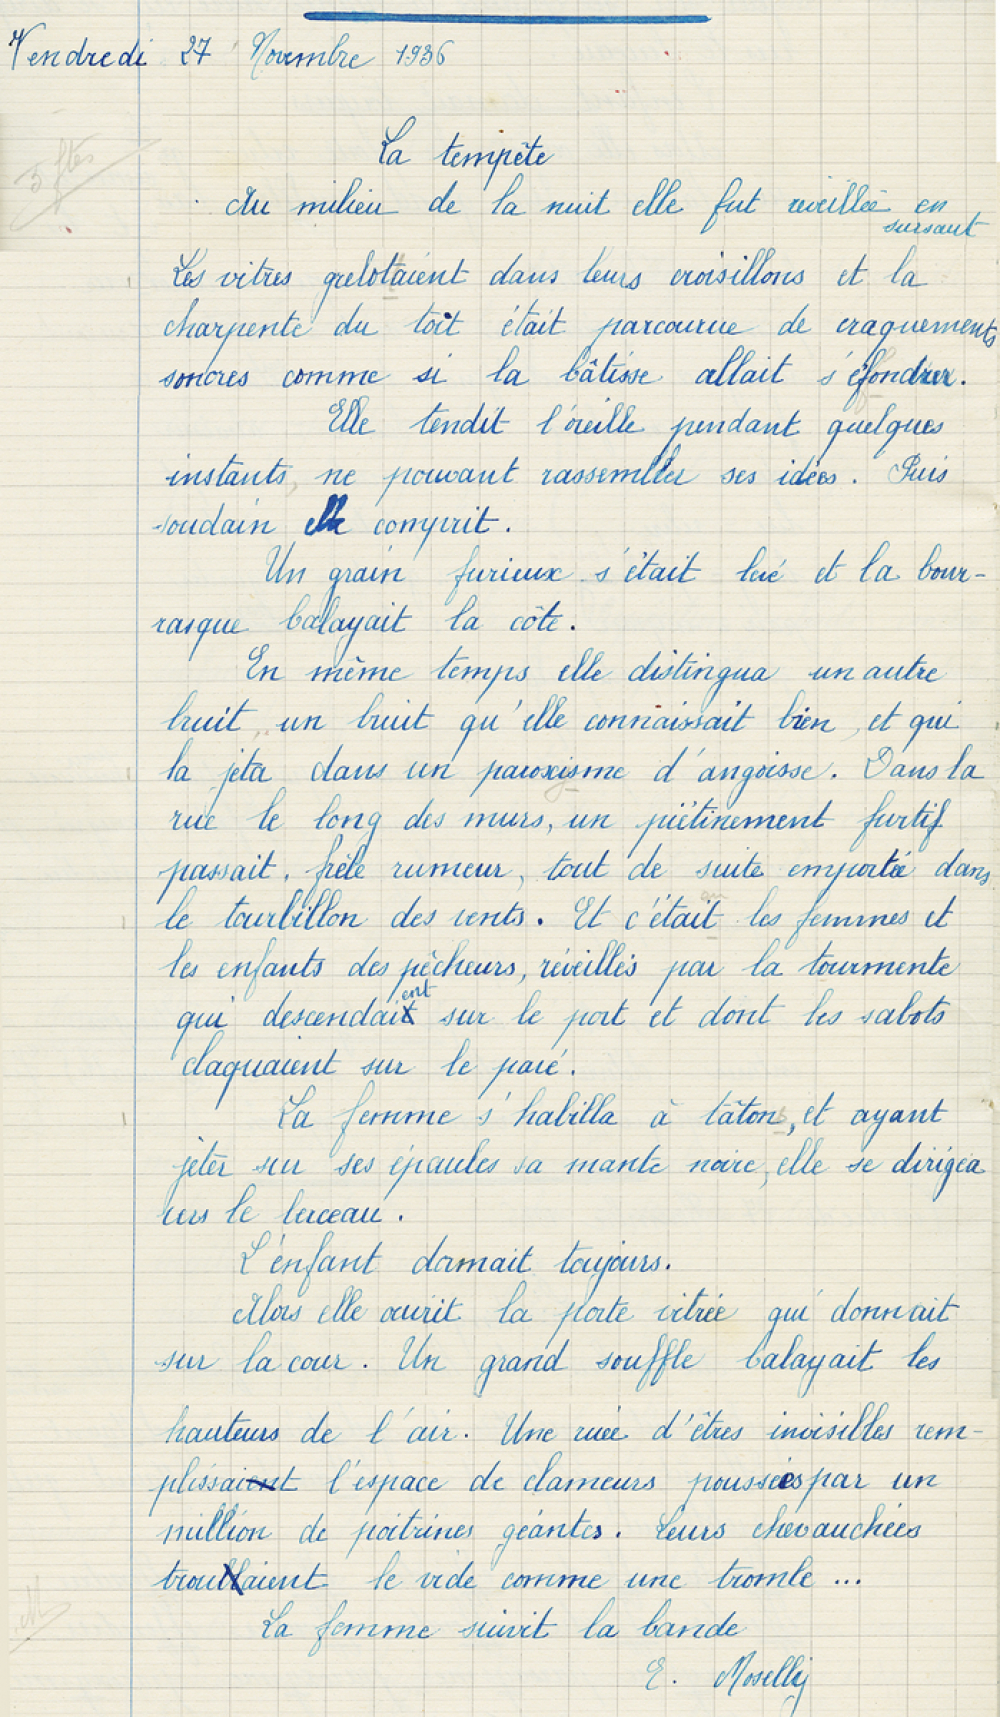 Vendredi 27 Novembre 1936
5 ftes
La tempête
Au milieu de la nuit elle fut réveillée en
sursaut
Les vitres grelotaient dans leurs croisillons et la
charpente du toit était parcourue de craquements
sonores comme si la bâtisse allait s'éfondrer.
Elle tendit l'oreille pendant quelques
instants, ne pouvant rassembler ses idées. Puis
soudain elle comprit.
Un grain furieux s'était levé et la bour-
rasque balayait la côte.
En même temps elle distingua un autre
bruit, un bruit qu'elle connaissait bien, et qui
la jeta dans un paroxisme d'angoisse. Dans la
rue le long des murs, un piétinement furtif
passait, frêle rumeur, tout de suite emportée dans
le tourbillon des vents. Et c'était les femmes et
les enfants des pêcheurs, réveillés par la tourmente
qui descendaient sur le port et dont les sabots
claquaient sur le pavé.
La femme s'habilla à tâtons, et ayant
jéter sur ses épaules sa mante noire, elle se dirigea
vers le berceau.
L'enfant dormait toujours.
Alors elle ouvrit la porte vitrée qui donnait
sur la cour. Un grand souffle balayait les
hauteurs de l'air. Une ruée d'êtres invisibles rem-
plissait l'espace de clameurs poussées par un
million de poitrines géantes. Leurs chevauchées
trouaient le vide comme une trombe ...
La femme suivit la bande
E. Moselly